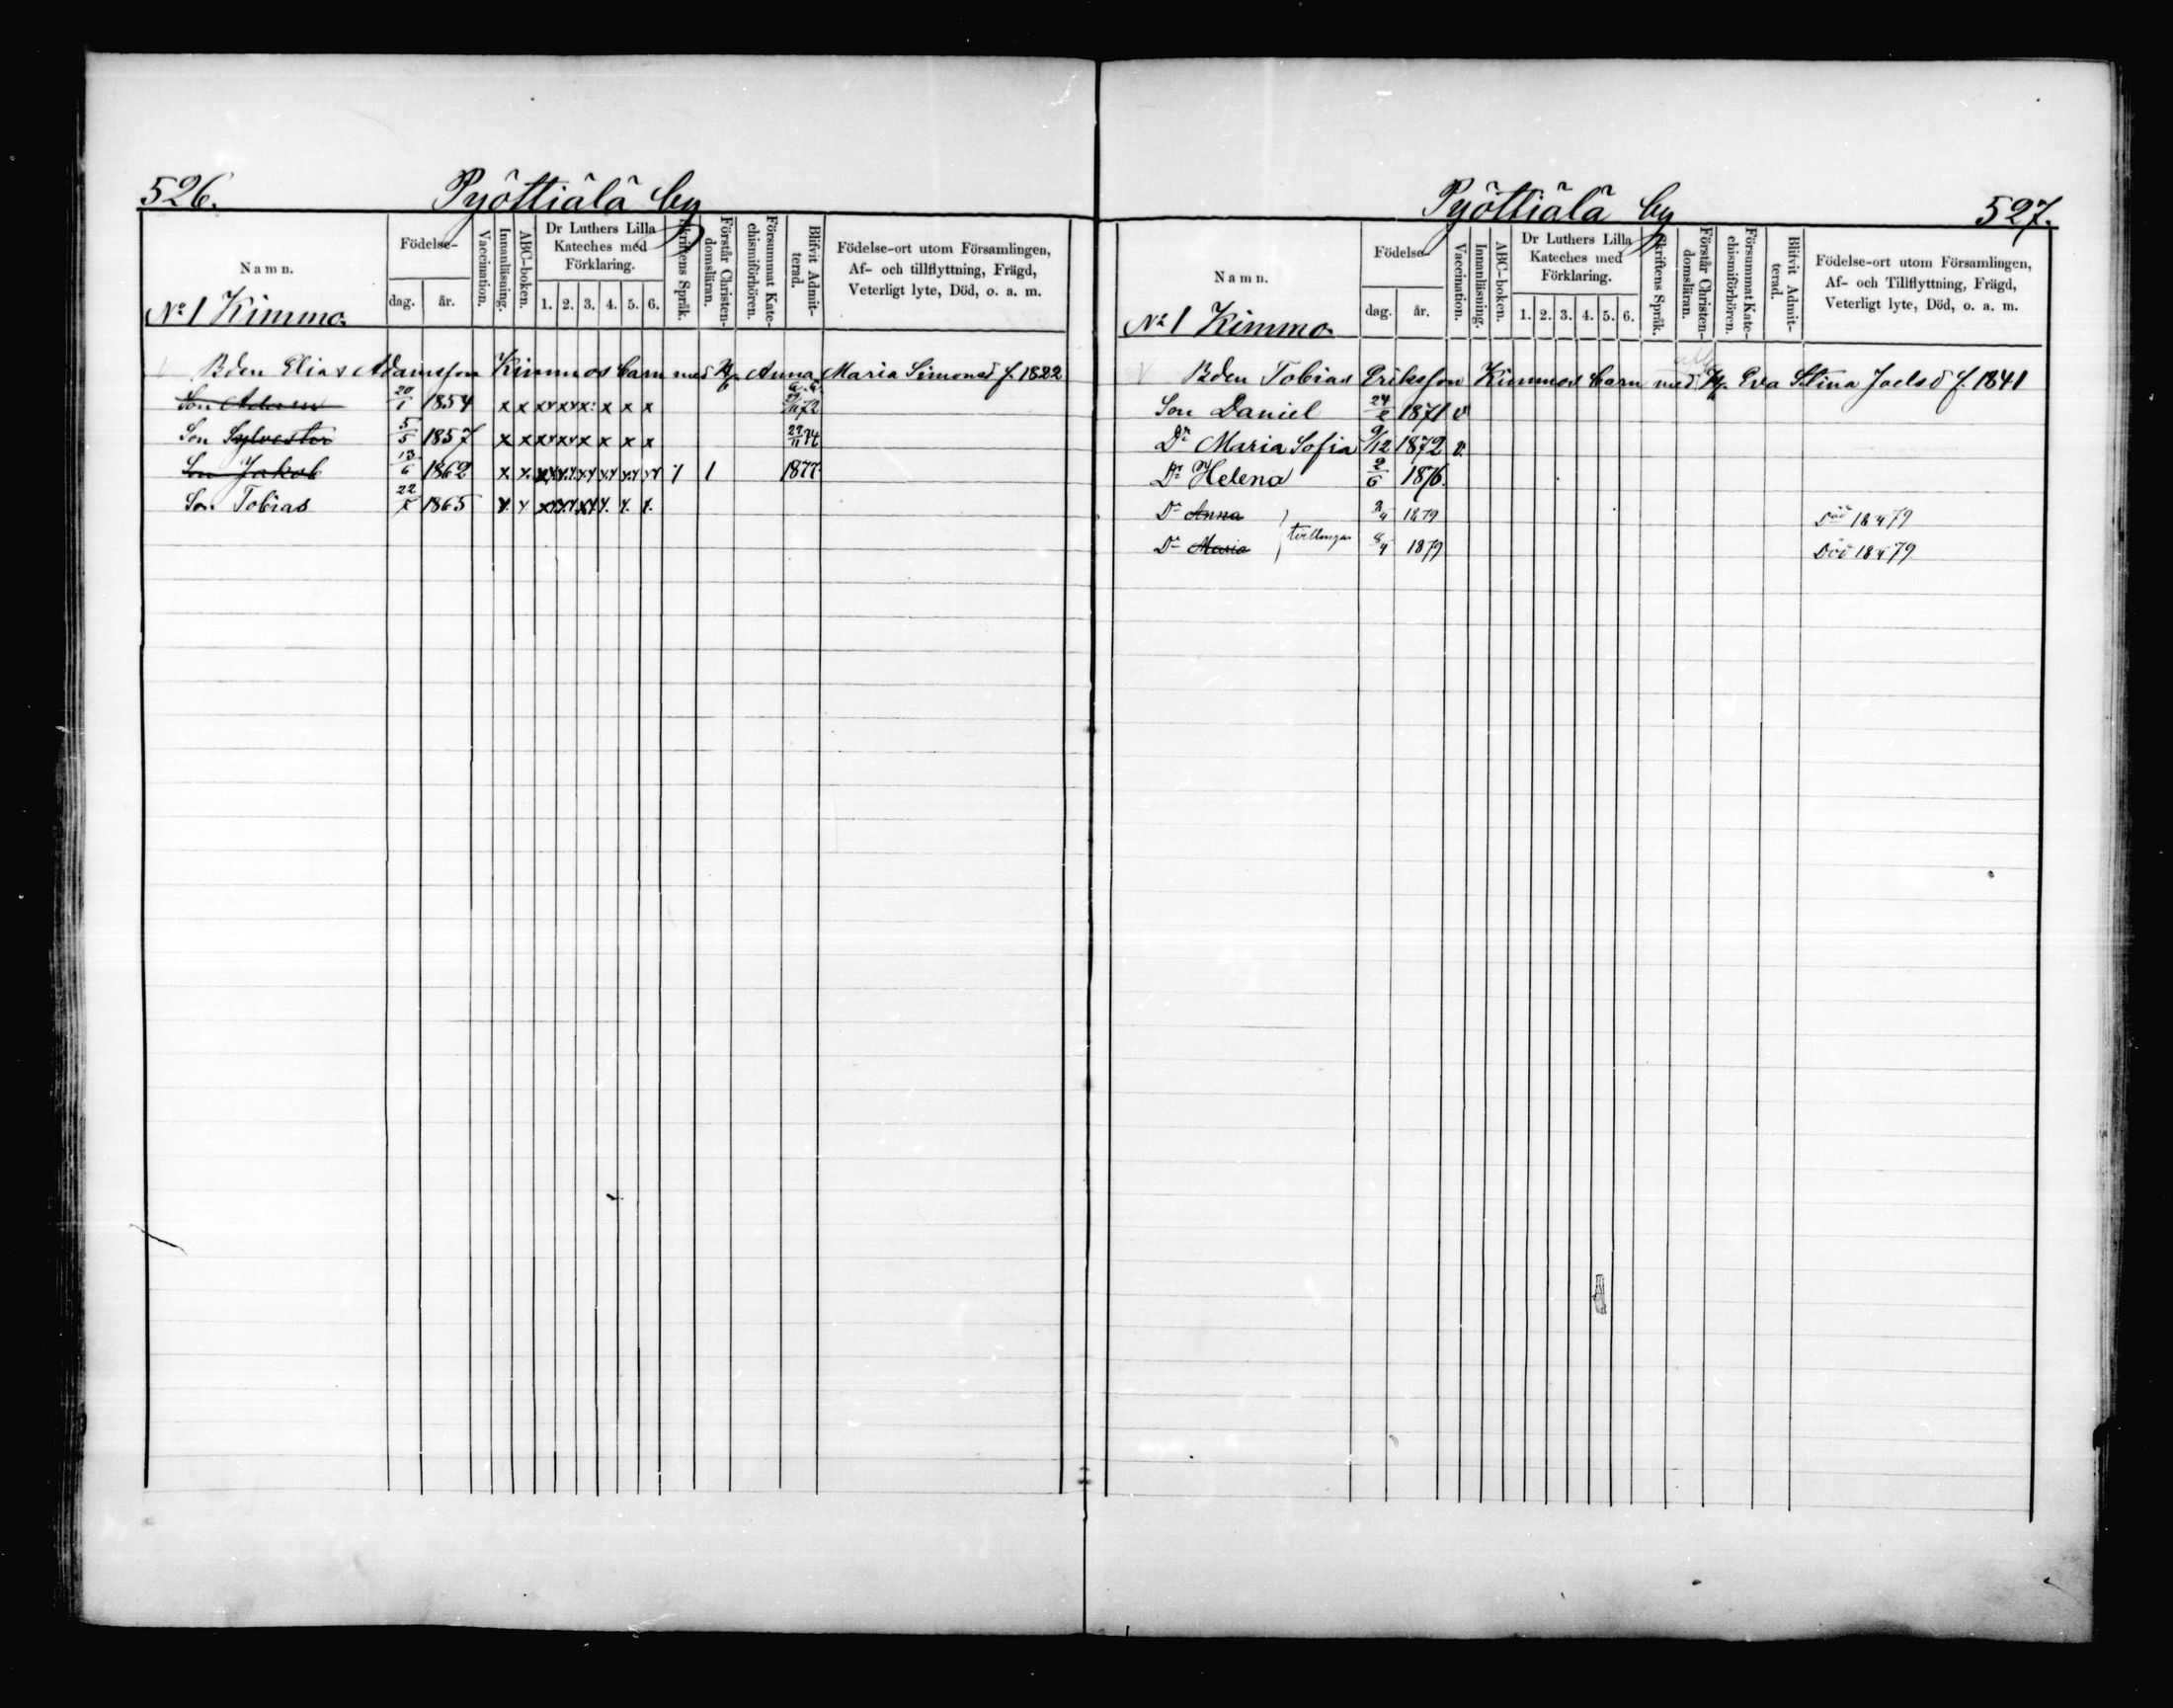 526. Pyöttiälä by
Namn. Födelse- dag. år. Vaccination. Innanläsning. ABC-boken. Dr Luthers Lilla Kateches med Förklaring. 1. 2. 3. 4. 5. 6. Skriftens Språk. Förstår Christen-domsläran. Försummat Kate-chismiförhören. Blifvit Admit-terad. Födelse-ort utom Församlingen, Af- och tillflyttning, Frägd, Veterligt lyte, Död, o. a. m.
No 1 Kimmo.
Bden Elias Adamsson Kimmos barn med H. Anna Maria Simonsd f. 1822
Son Adam 20/1 1854 x x x x x x x x
Son Sylvester 5/5 1857 x x x x x x x x 29/11 74
Son Jakob 13/6 1862 1877
Son Tobias 1865
Pyöttiälä by 527.
Namn. Födelse- dag. år. Vaccination. Innanläsning. ABC-boken. Dr Luthers Lilla Kateches med Förklaring. 1. 2. 3. 4. 5. 6. Skriftens Språk. Förstår Christen-domsläran. Försummat Kate-chismiförhören. Blifvit Admit-terad. Födelse-ort utom Församlingen, Af- och Tillflyttning, Frägd, Veterligt lyte, Död, o. a. m.
No 1 Kimmo.
Bden Tobias Eriksson Kimmos barn med H. Eva Stina Joelsd f. 1841
Son Daniel 1871 v
Dr Maria Sofia 9/12 1872 v.
Dr Helena 2/6 1876.
Dr Anna 1879 Död 18 4 79
tvillingar
Dr Maria 1879 Död 18 4 79